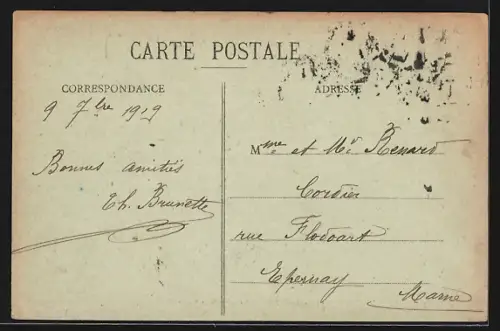 CARTE POSTALE
CORRESPONDANCE
9 7bre 1919
Bonnes amitiés
Ch. Brunette
ADRESSE
Mme et Mr Renard
Cordier
rue Flodoart
Epernay
Marne